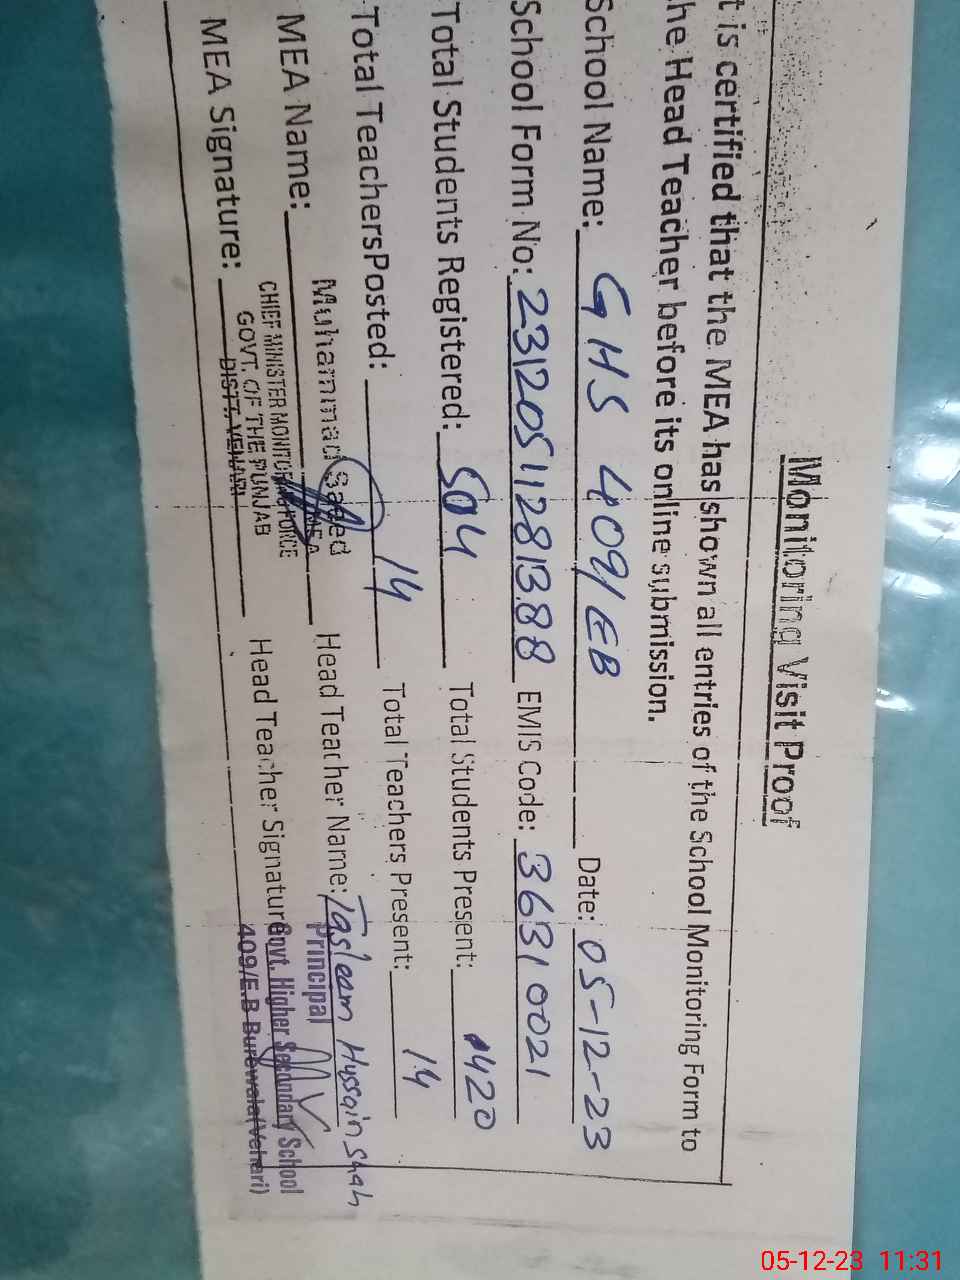 Monitoring Visit Proof
t is certified that the MEA has shown all entries of the School Monitoring Form to
he Head Teacher before its online submission.
School Name: GHS 409/EB Date: 05-12-23
School Form No: 23120511281388 EMIS Code: 36310021
Total Students Registered: 504 Total Students Present: 420
Total TeachersPosted: 14 Total Teachers Present: 14
MEA Name: Muhammad Saeed Head Teacher Name: Tasleem Hussain Shah
MEA
CHIEF MINISTER MONITORING FORCE
GOVT. OF THE PUNJAB
DISTT. VEHARI
MEA Signature: Head Teacher Signature
Principal
Govt. Higher Secondary School
409/E.B Burewala (Vehari)
05-12-23 11:31